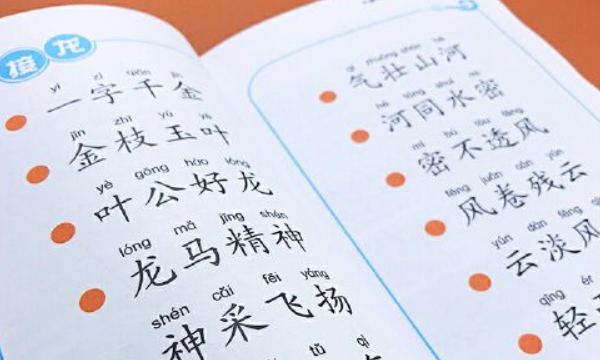 接龙
yī zì qiān jīn
一字千金
jīn zhī yù yè
金枝玉叶
yè gōng hào lóng
叶公好龙
lóng mǎ jīng shén
龙马精神
shén cǎi fēi yáng
神采飞扬
tǔ qì
qì zhuàng shān hé
气壮山河
hé tóng shuǐ mì
河同水密
mì bù tòu fēng
密不透风
fēng juǎn cán yún
风卷残云
yún dàn fēng
云淡风
qīng ér
轻